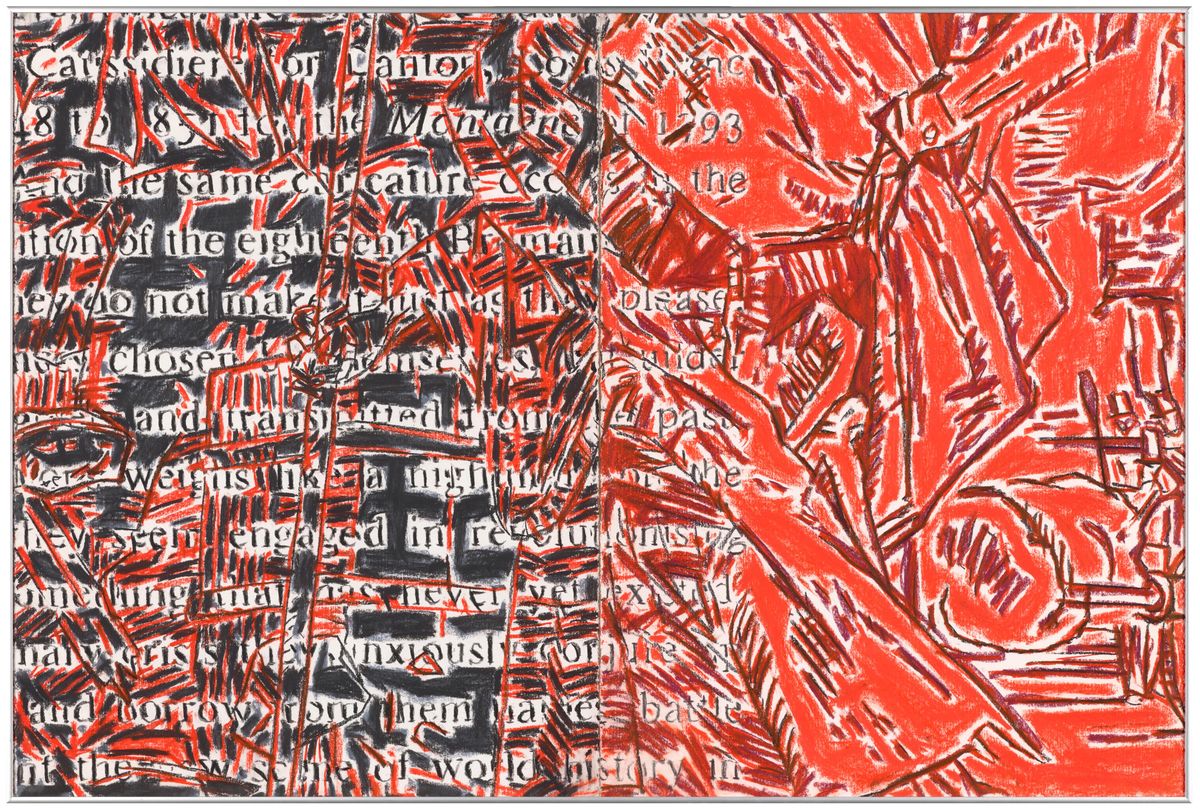 Caussidiere for Danton,
48 to 1851 for the Montagne of 1793
And the same caricature occurs in the
ition of the eighteenth Brumair
hey do not make it just as they please
chosen by themselves, but under
and transmitted from the past
weighs like a nightmare on the
they seem engaged in revolutionis
omething that has never yet existed
nary crisis they anxiously conjure up
and borrow from them names battle
nt the new scene of world history in